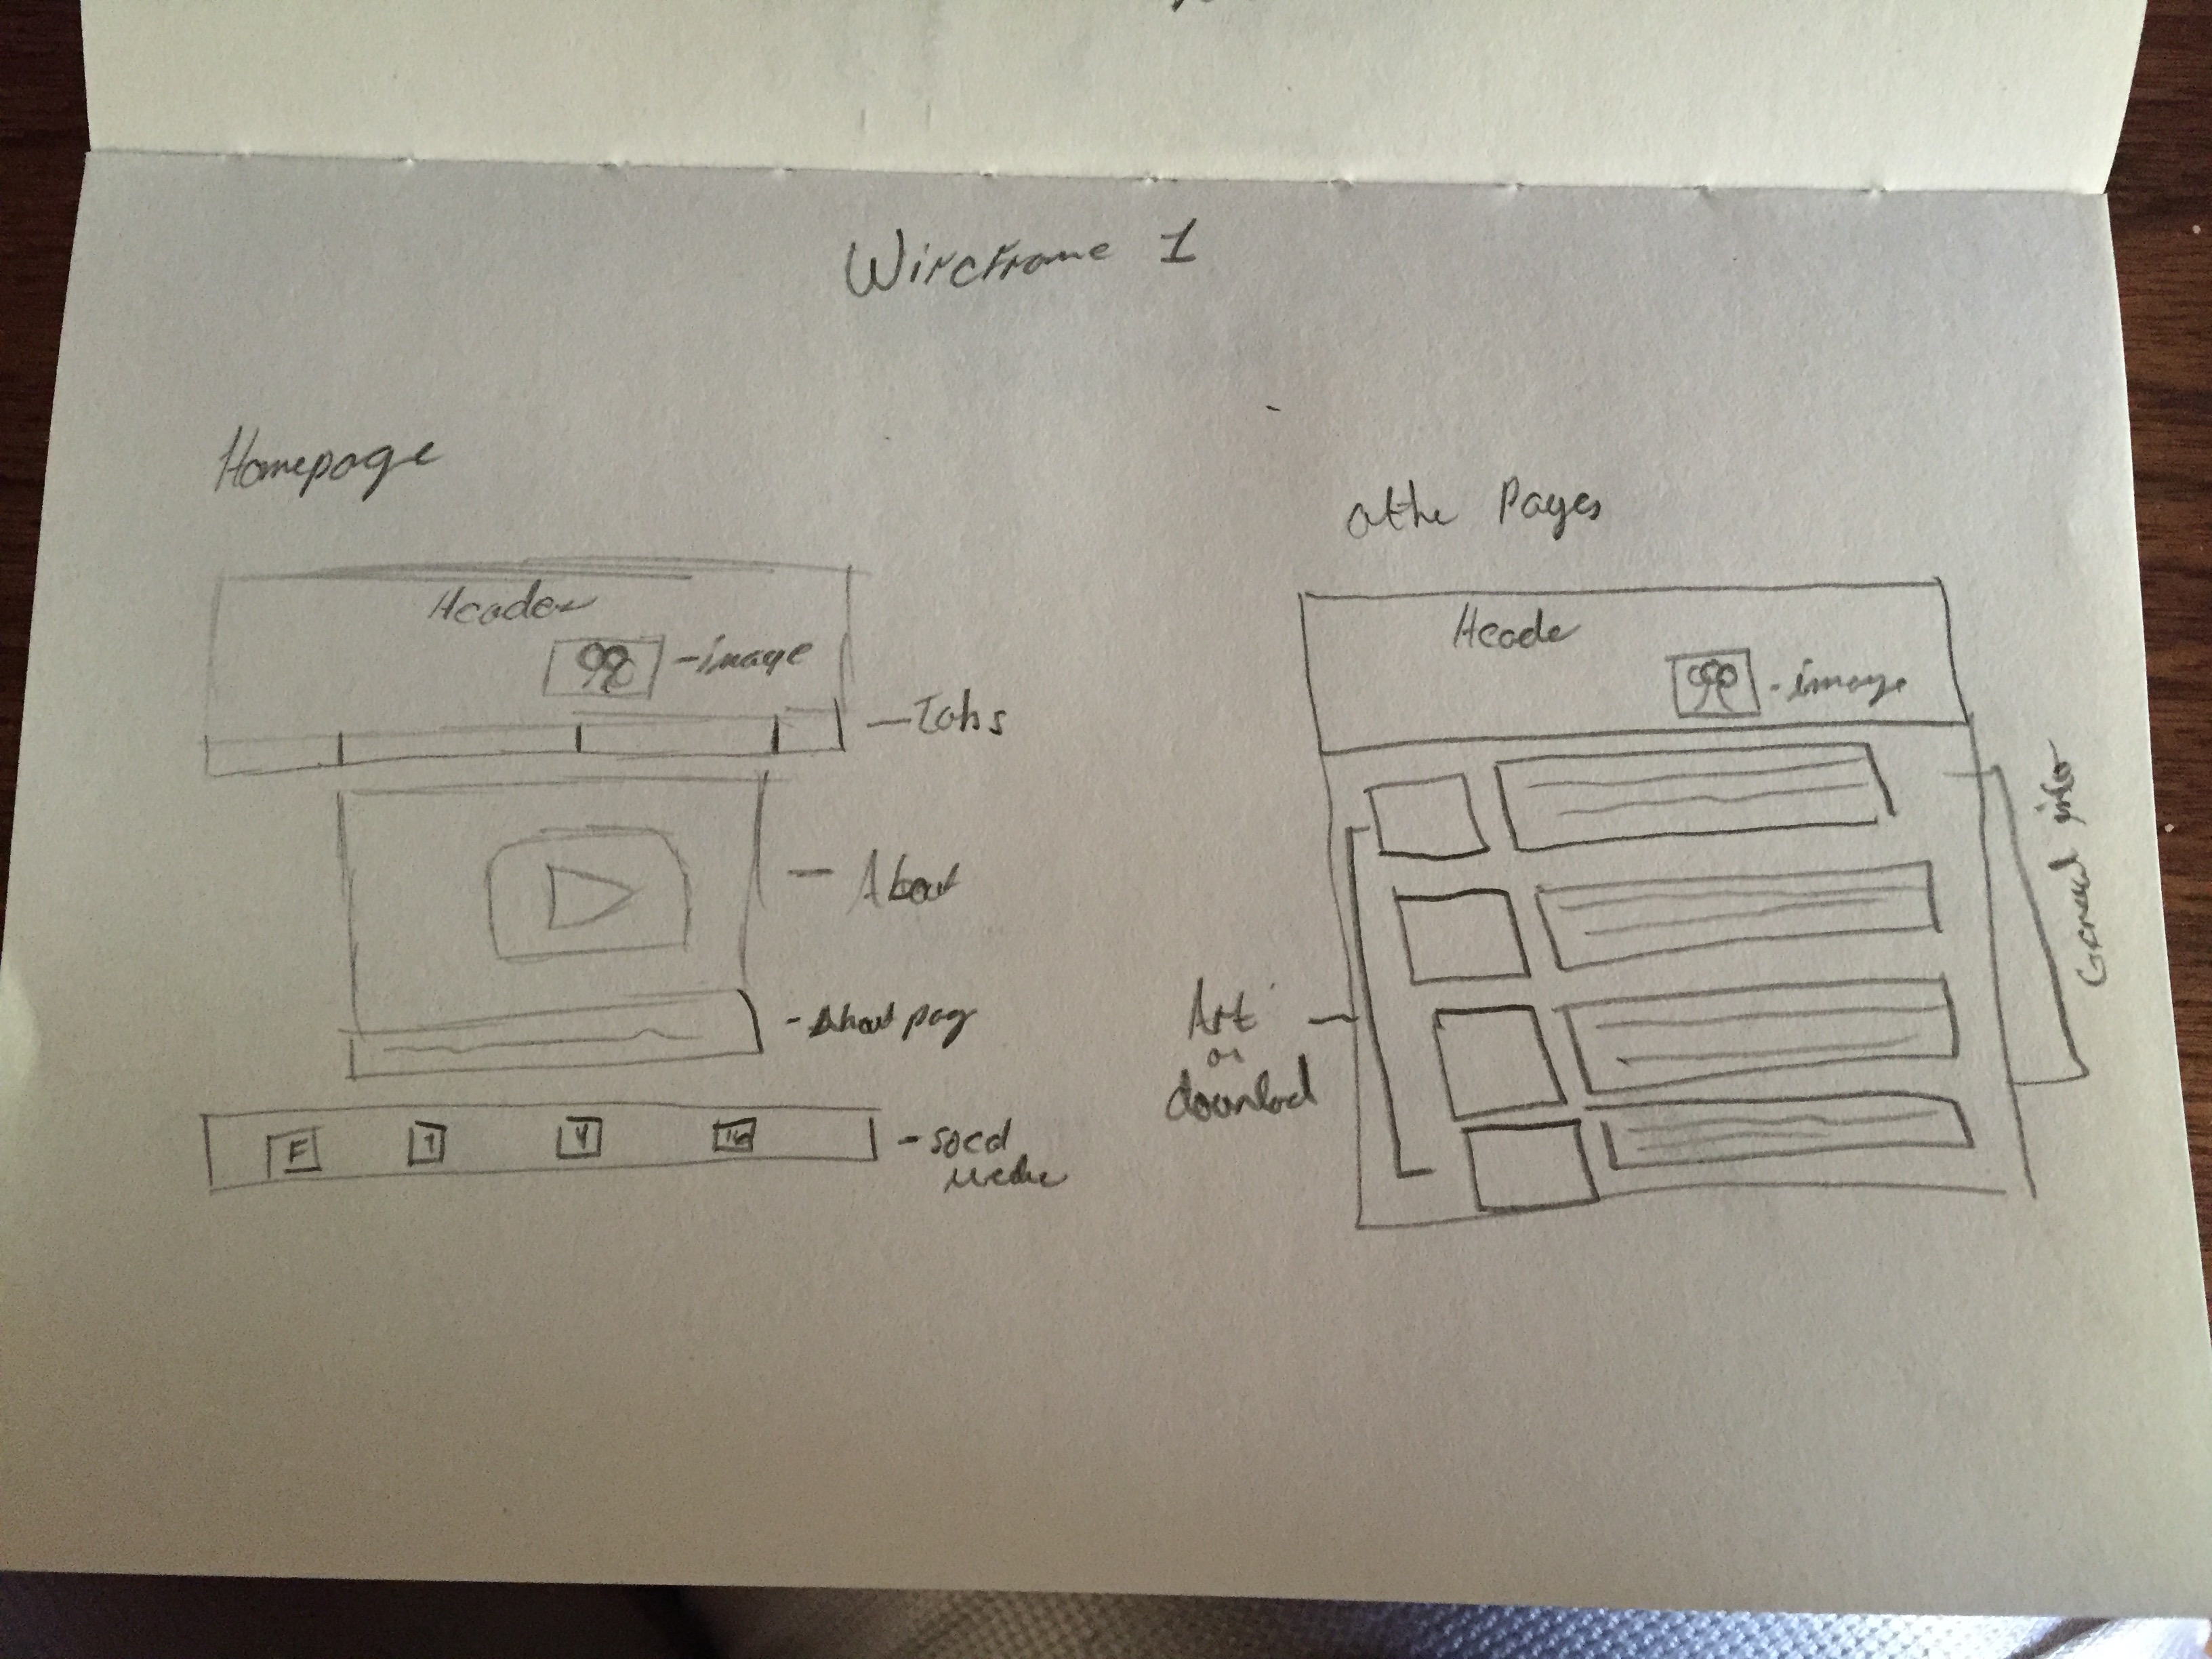 Wireframe 1
Homepage
Header
-image
-Tabs
- About
- About pag
F
T
Y
IG
- socal
Media
othe Pages
Heade
- image
General info
Art
or
download